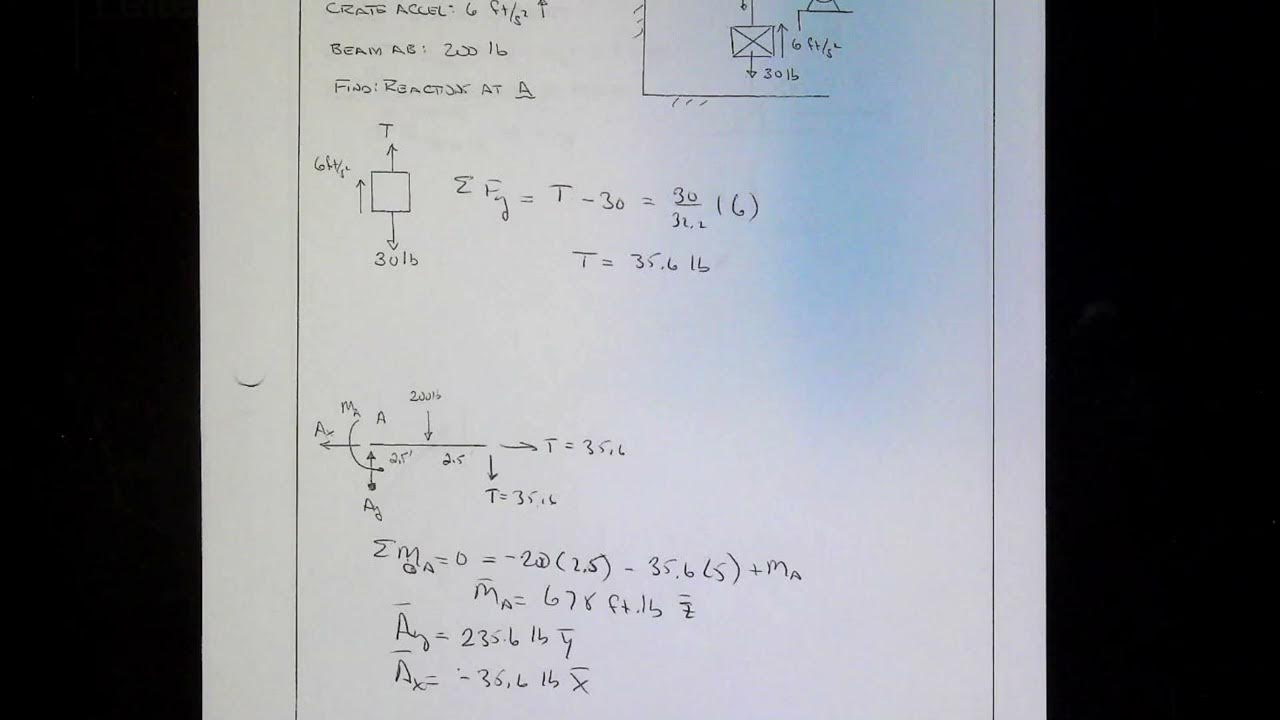 CRATE ACCEL: 6 ft/s² ↑
BEAM AB: 200 lb
FIND: REACTIONS AT A
6 ft/s²
30 lb
T
6ft/s²
30 lb
ΣFy = T - 30 = 30/32.2 (6)
T = 35.6 lb
200lb
MA
A
Ax
2.5'
2.5
T = 35.6
T = 35.6
Ay
ΣM@A = 0 = -200(2.5) - 35.6(5) + MA
M̄A = 678 ft.lb z̄
Āy = 235.6 lb ȳ
Āx = -35.6 lb x̄